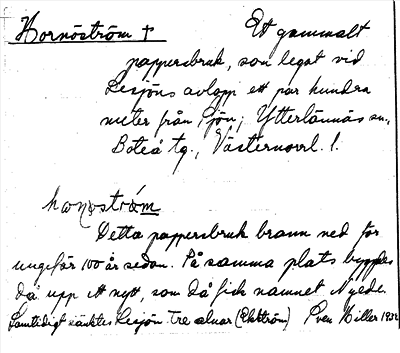 Hornöström † Ett gammalt
pappersbruk, som legat vid
Lesjöns avlopp ett par hundra
meter från sjön, Ytterlännäs sn.,
Boteå tg., Västernorrl. l.
Detta pappersbruk brann ned för
ungefär 100 år sedan. På samma plats byggdes
då upp ett nytt, som då fick namnet Nyede.
Samtidigt sänktes Lesjön tre alnar (Ekström) Sven Hiller 1932